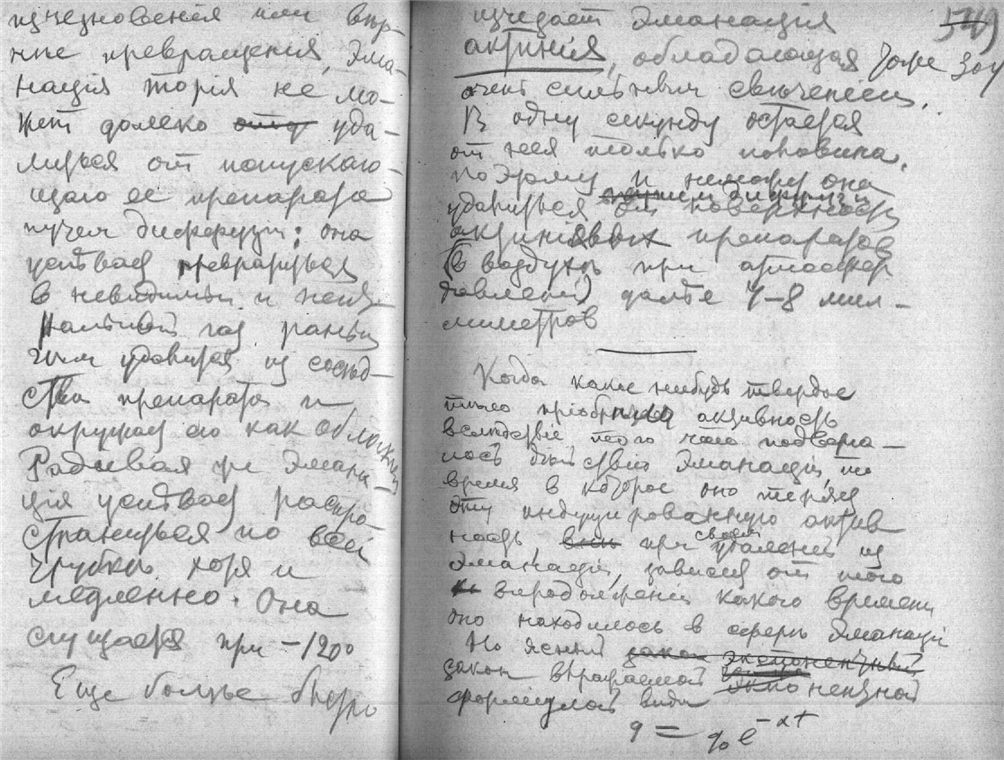 исчезновенія или
ные превращенія, Эма-
нація торія не мо-
жетъ далеко уда-
литься от испускаю-
щаго ее препарата
путем диффузіи; она
успѣвает превратиться
в невидимый и
газ раньше
чем удалится из сосѣд-
ства препарата и
окружает его как
Радіевая же Эмана-
ція успѣвает распро-
страниться по всей
трубкѣ хотя и
медленно. Она
сгущается при –120°
Еще болѣе быстро
исчезает Эманація
актинія, обладающая тоже
очень сильным свѣченіем.
В одну секунду остается
от нея только половина.
поэтому и не может она
удалиться путем диффузіи от поверхности
актиніевых препаратов
(в воздухѣ при атмосфер
давленіи) далѣе 7–8 мил-
лиметров
Когда какое нибудь твердое
тѣло пріобрѣтает активность
вслѣдствіе того что подверга-
лось дѣйствію Эманаціи, то
время в которое оно теряет
эту индуцированную актив
ность, при своем удаленіи из
Эманаціи, зависит от того
в продолженіи какого времени
оно находилось в сферѣ Эманаціи
Но
закон выражаемый
формулой вида
q = q₀ e^{-αt}